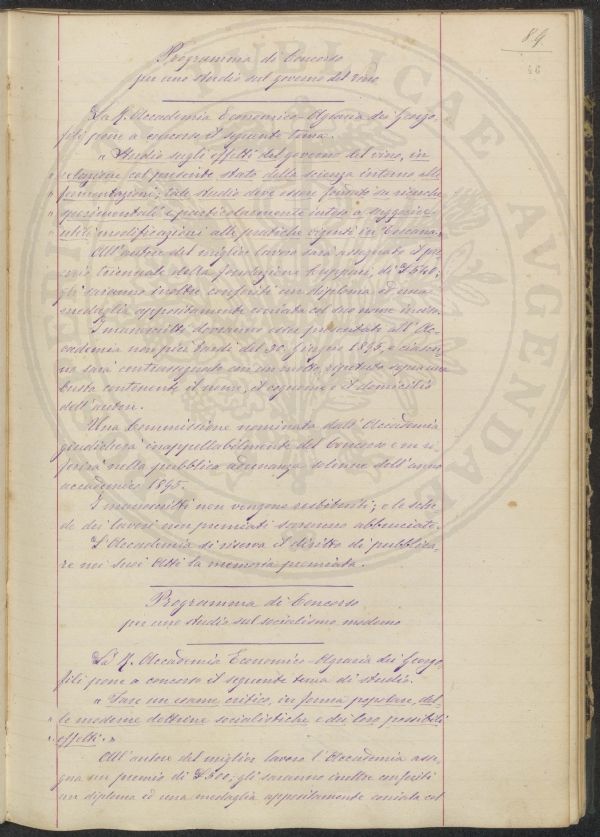 84
Programma di Concorso
per uno studio sul governo del vino
La R. Accademia Economico-Agraria dei Georgo,
fili pone a concorso il seguente tema.
" Studio sugli effetti del governo del vino, in
" relazione col presente stato della scienza intorno alle
" fermentazioni; tale studio deve essere fondato su ricerche
" sperimentali e particolarmente inteso a suggerire
" utili modificazioni alle pratiche vigenti in Toscana.
All'autore del miglior lavoro sarà assegnato il pre,
mio triennale della fondazione di £ 560;
gli saranno inoltre conferiti un diploma ed una
medaglia appositamente coniata col suo nome inciso.
I manoscritti dovranno esser presentati all'Ac-
cademia non più tardi del 30 Giugno 1895, e ciascu-
na sarà contrassegnato con un motto, ripetuto sopra una
busta contenente il nome, il cognome e il domicilio
dell'autore.
Una Commissione nominata dall'Accademia
giudicherà inappellabilmente del Concorso e ne ri-
ferirà nella pubblica adunanza solenne dell'anno
accademico 1895.
I manoscritti non vengono restituiti; e le sche-
de dei lavori non premiati saranno abbruciate.
L'Accademia si riserva il diritto di pubblica-
re nei suoi Atti la memoria premiata.
Programma di Concorso
per uno studio sul socialismo moderno
La R. Accademia Economico-Agraria dei Georgo,
fili pone a concorso il seguente tema di studio.
" Fare un esame critico, in forma popolare, del-
" le moderne dottrine socialistiche e dei loro possibili
" effetti. "
All'autore del miglior lavoro l'Accademia asse,
gna un premio di £ 500; gli saranno inoltre conferiti
un diploma ed una medaglia appositamente coniata col